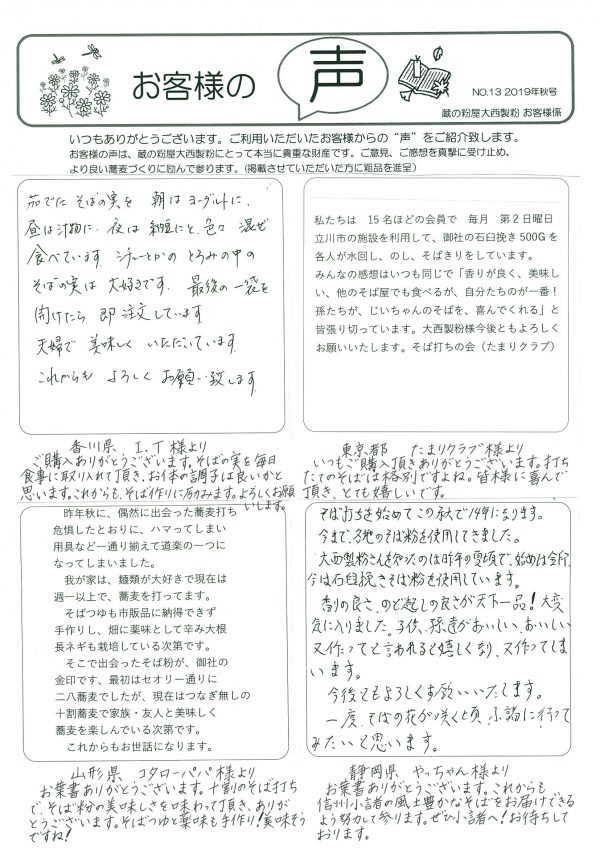 お客様の 声
NO.13 2019年秋号
蔵の粉屋大西製粉 お客様係
いつもありがとうございます。ご利用いただいたお客様からの“声”をご紹介致します。
お客様の声は、蔵の粉屋大西製粉にとって本当に貴重な財産です。ご意見、ご感想を真摯に受け止め、
より良い蕎麦づくりに励んで参ります。(掲載させていただいた方に粗品を進呈)
茹でた そばの実を 朝は ヨーグルトに、
昼は汁物に、夜は 納豆にと、色々 混ぜ
食べています。シチューとかの とろみの中の
そばの実は 大好きです。 最後の一袋を
開けたら 即 注文しています
夫婦で 美味しく いただいています。
これからも よろしく お願い致します
香川県 I.T 様より
ご購入ありがとうございます。そばの実を毎日
食事に取り入れて頂き、お体の調子は良いかと
思います。これからも、そば作りに励みます。よろしくお願
いします。
私たちは 15名ほどの会員で 毎月 第2日曜日
立川市の施設を利用して、御社の石臼挽き500Gを
各人が水回し、のし、そばきりをしています。
みんなの感想はいつも同じで「香りが良く、美味し
い、他のそば屋でも食べるが、自分たちのが一番!
孫たちが、じいちゃんのそばを、喜んでくれる」と
皆張り切っています。大西製粉様今後ともよろしく
お願いいたします。そば打ちの会(たまりクラブ)
東京都 たまりクラブ様より
いつもご購入頂きありがとうございます。打ち
たてのそばは格別ですよね。皆様に喜んで
頂き、とても嬉しいです。
昨年秋に、偶然に出会った蕎麦打ち
危惧したとおりに、ハマってしまい
用具など一通り揃えて道楽の一つに
なってしまいました。
我が家は、麺類が大好きで現在は
週一以上で、蕎麦を打ってます。
そばつゆも市販品に納得できず
手作りし、畑に薬味として辛み大根
長ネギも栽培している次第です。
そこで出会ったそば粉が、御社の
金印です、最初はセオリー通りに
二八蕎麦でしたが、現在はつなぎ無しの
十割蕎麦で家族・友人と美味しく
蕎麦を楽しんでいる次第です。
これからもお世話になります。
山形県 コタローパパ様より
お葉書ありがとうございます。十割のそば打ち
で、そば粉の美味しさを味わって頂き、ありが
とうございます。そばつゆと薬味も手作り!美味そう
ですね!
そば打ちを始めてこの秋で19年になります。
今まで、各地のそば粉を使用してきました。
大西製粉さんを知ったのは昨年の夏頃で、始めは金印、
今は石臼挽きそば粉を使用しています。
香りの良さ、のど越しの良さが天下一品!大変
気に入りました。子供、孫達がおいしい、おいしい
又作ってと言われると嬉しくなり、又作ってしま
います。
今後ともよろしくお願いいたします。
一度、そばの花が咲く頃、小諸に行って
みたいと思います。
静岡県 やっちゃん様より
お葉書ありがとうございます。これからも
信州小諸の風土豊かなそばをお届けできる
よう努力して参ります。ぜひ小諸へ!お待ちして
おります。